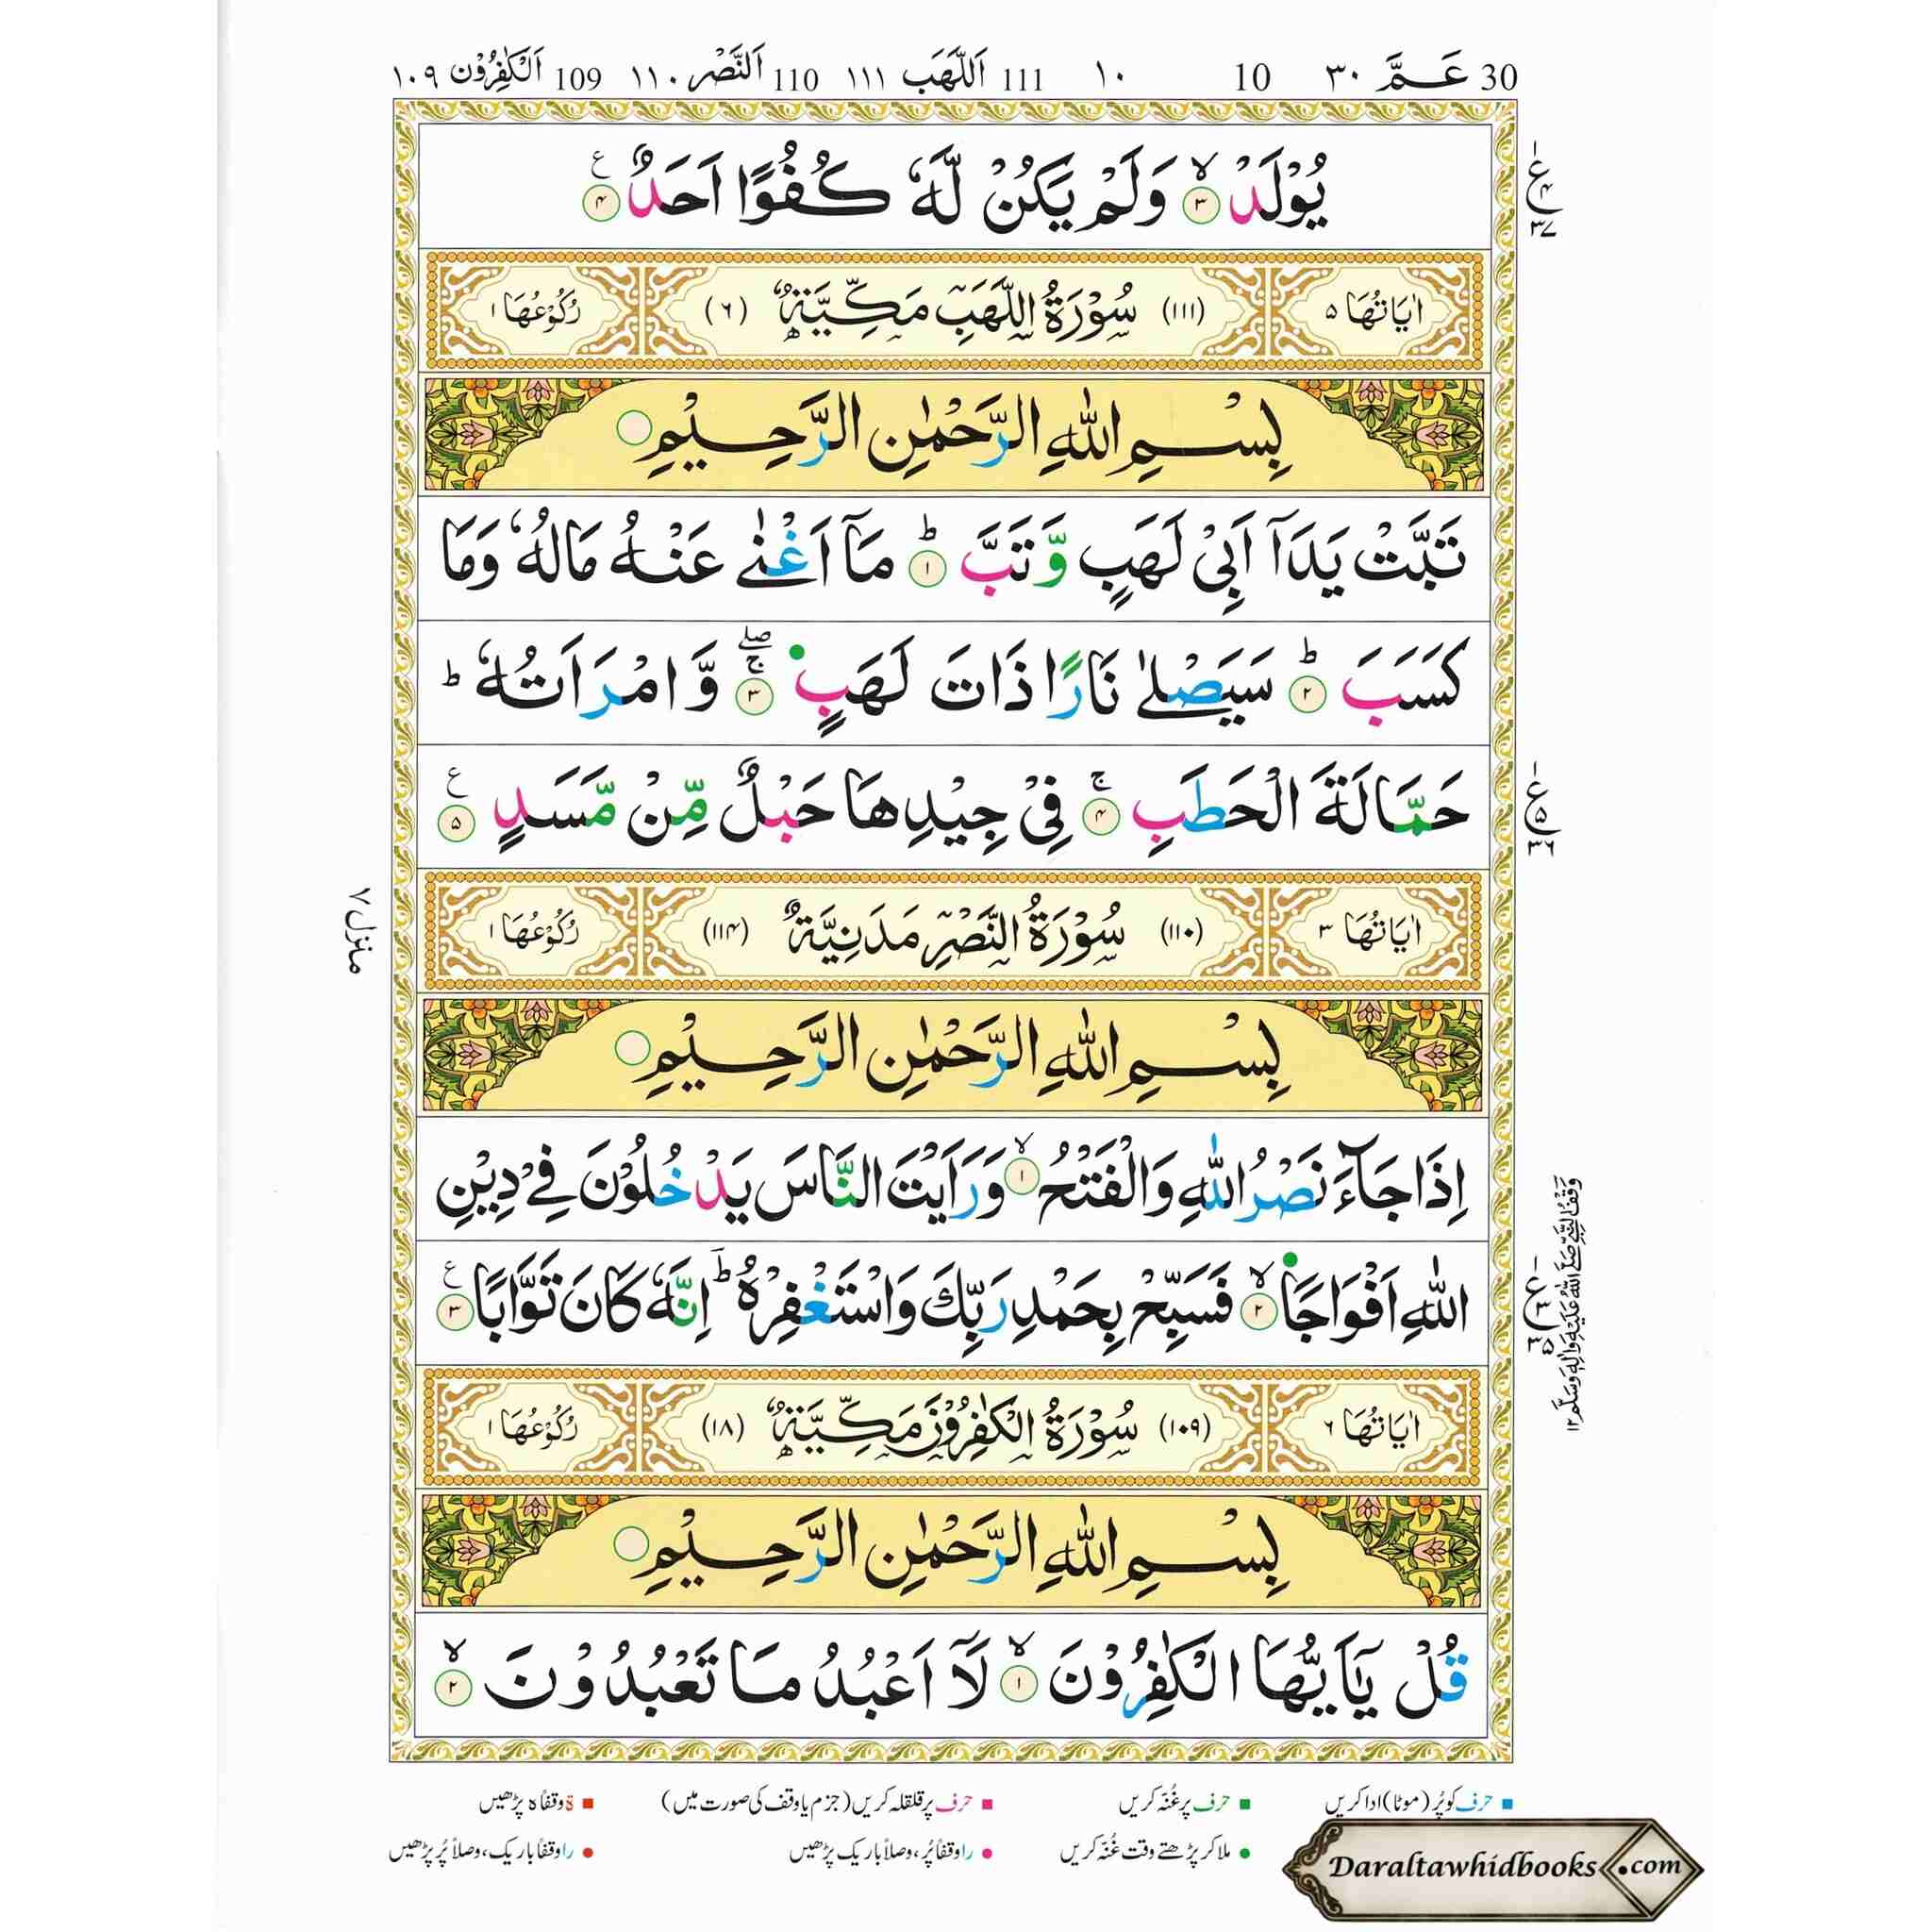 30 عَـمَّ ٣٠ 10 ١٠ 111 اَللَّهَب ١١١ 110 اَلنَّصْر ١١٠ 109 اَلْكٰفِرُوْن ١٠٩
يُوْلَدْ ۙ ۳ وَلَمْ يَكُنْ لَّهٗ كُفُوًا اَحَدٌ ۴ ع
ع ۴ ۳۷
اٰيَاتُهَا ۵ (۱۱۱) سُوْرَةُ اللَّهَبِ مَكِّيَّةٌ (۶) رُكُوْعُهَا ۱
بِسْمِ اللّٰهِ الرَّحْمٰنِ الرَّحِيْمِ
تَبَّتْ يَدَآ اَبِيْ لَهَبٍ وَّتَبَّ ؕ ۱ مَآ اَغْنٰى عَنْهُ مَالُهٗ وَمَا
كَسَبَ ؕ ۲ سَيَصْلٰى نَارًا ذَاتَ لَهَبٍ ۚ ۖ ۳ وَّامْرَاَتُهٗ ؕ
حَمَّالَةَ الْحَطَبِ ۚ ۴ فِيْ جِيْدِهَا حَبْلٌ مِّنْ مَّسَدٍ ۵ ع
ع ۵ ۳۶
منزل ۷
اٰيَاتُهَا ۳ (۱۱۰) سُوْرَةُ النَّصْرِ مَدَنِيَّةٌ (۱۱۴) رُكُوْعُهَا ۱
بِسْمِ اللّٰهِ الرَّحْمٰنِ الرَّحِيْمِ
اِذَا جَآءَ نَصْرُ اللّٰهِ وَالْفَتْحُ ۙ ۱ وَرَاَيْتَ النَّاسَ يَدْخُلُوْنَ فِيْ دِيْنِ
اللّٰهِ اَفْوَاجًا ۙ ۲ فَسَبِّحْ بِحَمْدِ رَبِّكَ وَاسْتَغْفِرْهُ ؕ اِنَّهٗ كَانَ تَوَّابًا ۳ ع
ع ۳ ۳۵
وَقْفُ النَّبِيِّ صَلَّى اللّٰهُ عَلَيْهِ وَاٰلِهٖ وَسَلَّمَ ۱۲
اٰيَاتُهَا ۶ (۱۰۹) سُوْرَةُ الْكٰفِرُوْنَ مَكِّيَّةٌ (۱۸) رُكُوْعُهَا ۱
بِسْمِ اللّٰهِ الرَّحْمٰنِ الرَّحِيْمِ
قُلْ يٰٓاَيُّهَا الْكٰفِرُوْنَ ۙ ۱ لَآ اَعْبُدُ مَا تَعْبُدُوْنَ ۙ ۲
حرف کو پُر (موٹا) ادا کریں ■ حرف پر غُنّہ کریں ■ حرف پر قلقلہ کریں (جزم یا وقف کی صورت میں) ■ ة وقفاً ہ پڑھیں
● ملا کر پڑھتے وقت غُنّہ کریں ● را وقفاً پُر، وصلاً باریک پڑھیں ● را وقفاً باریک، وصلاً پُر پڑھیں
Daraltawhidbooks.com